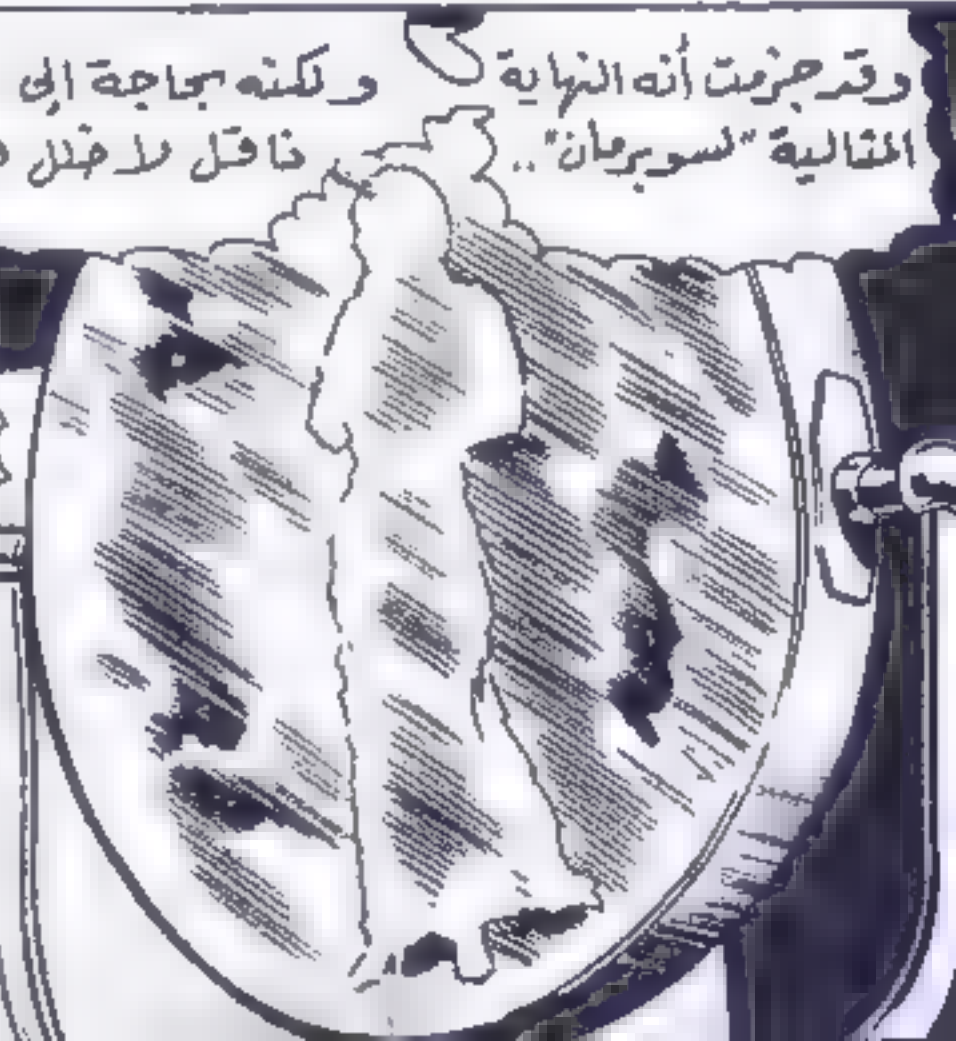 وقد جزمت أنه النهاية
المثالية "لسوبرمان"..
ولكنه بحاجة الى
ناقل لا خلل